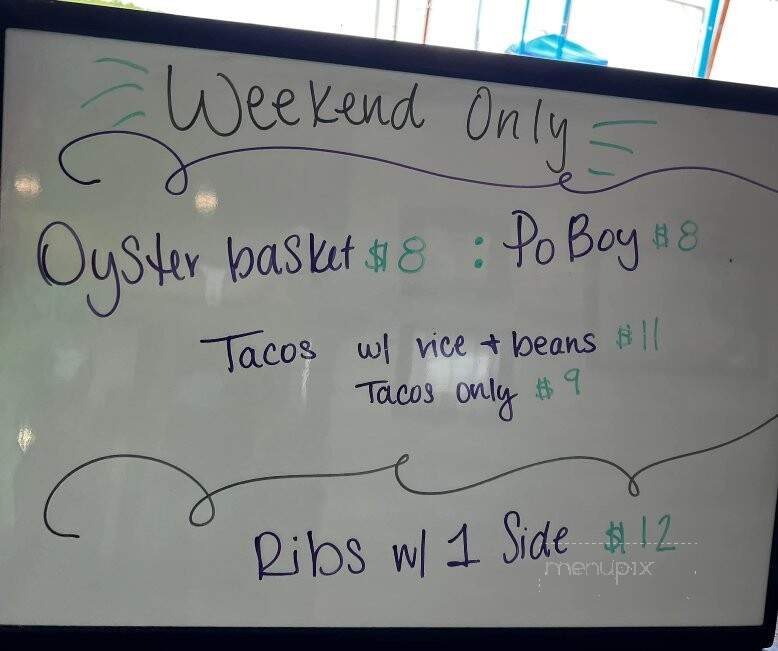 Weekend Only
Oyster basket $8 : Po Boy $8
Tacos w/ rice + beans $11
Tacos only $9
Ribs w/ 1 Side $12
menupix